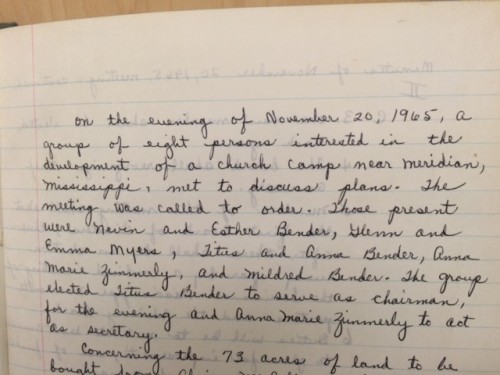 On the evening of November 20, 1965, a
group of eight persons interested in the
development of a church camp near Meridian,
Mississippi, met to discuss plans. The
meeting was called to order. Those present
were Nevin and Esther Bender, Glenn and
Emma Myers, Titus and Anna Bender, Anna
Marie Zimmerly, and Mildred Bender. The group
elected Titus Bender to serve as chairman,
for the evening and Anna Marie Zimmerly to act
as secretary.
Concerning the 73 acres of land to be
bought from